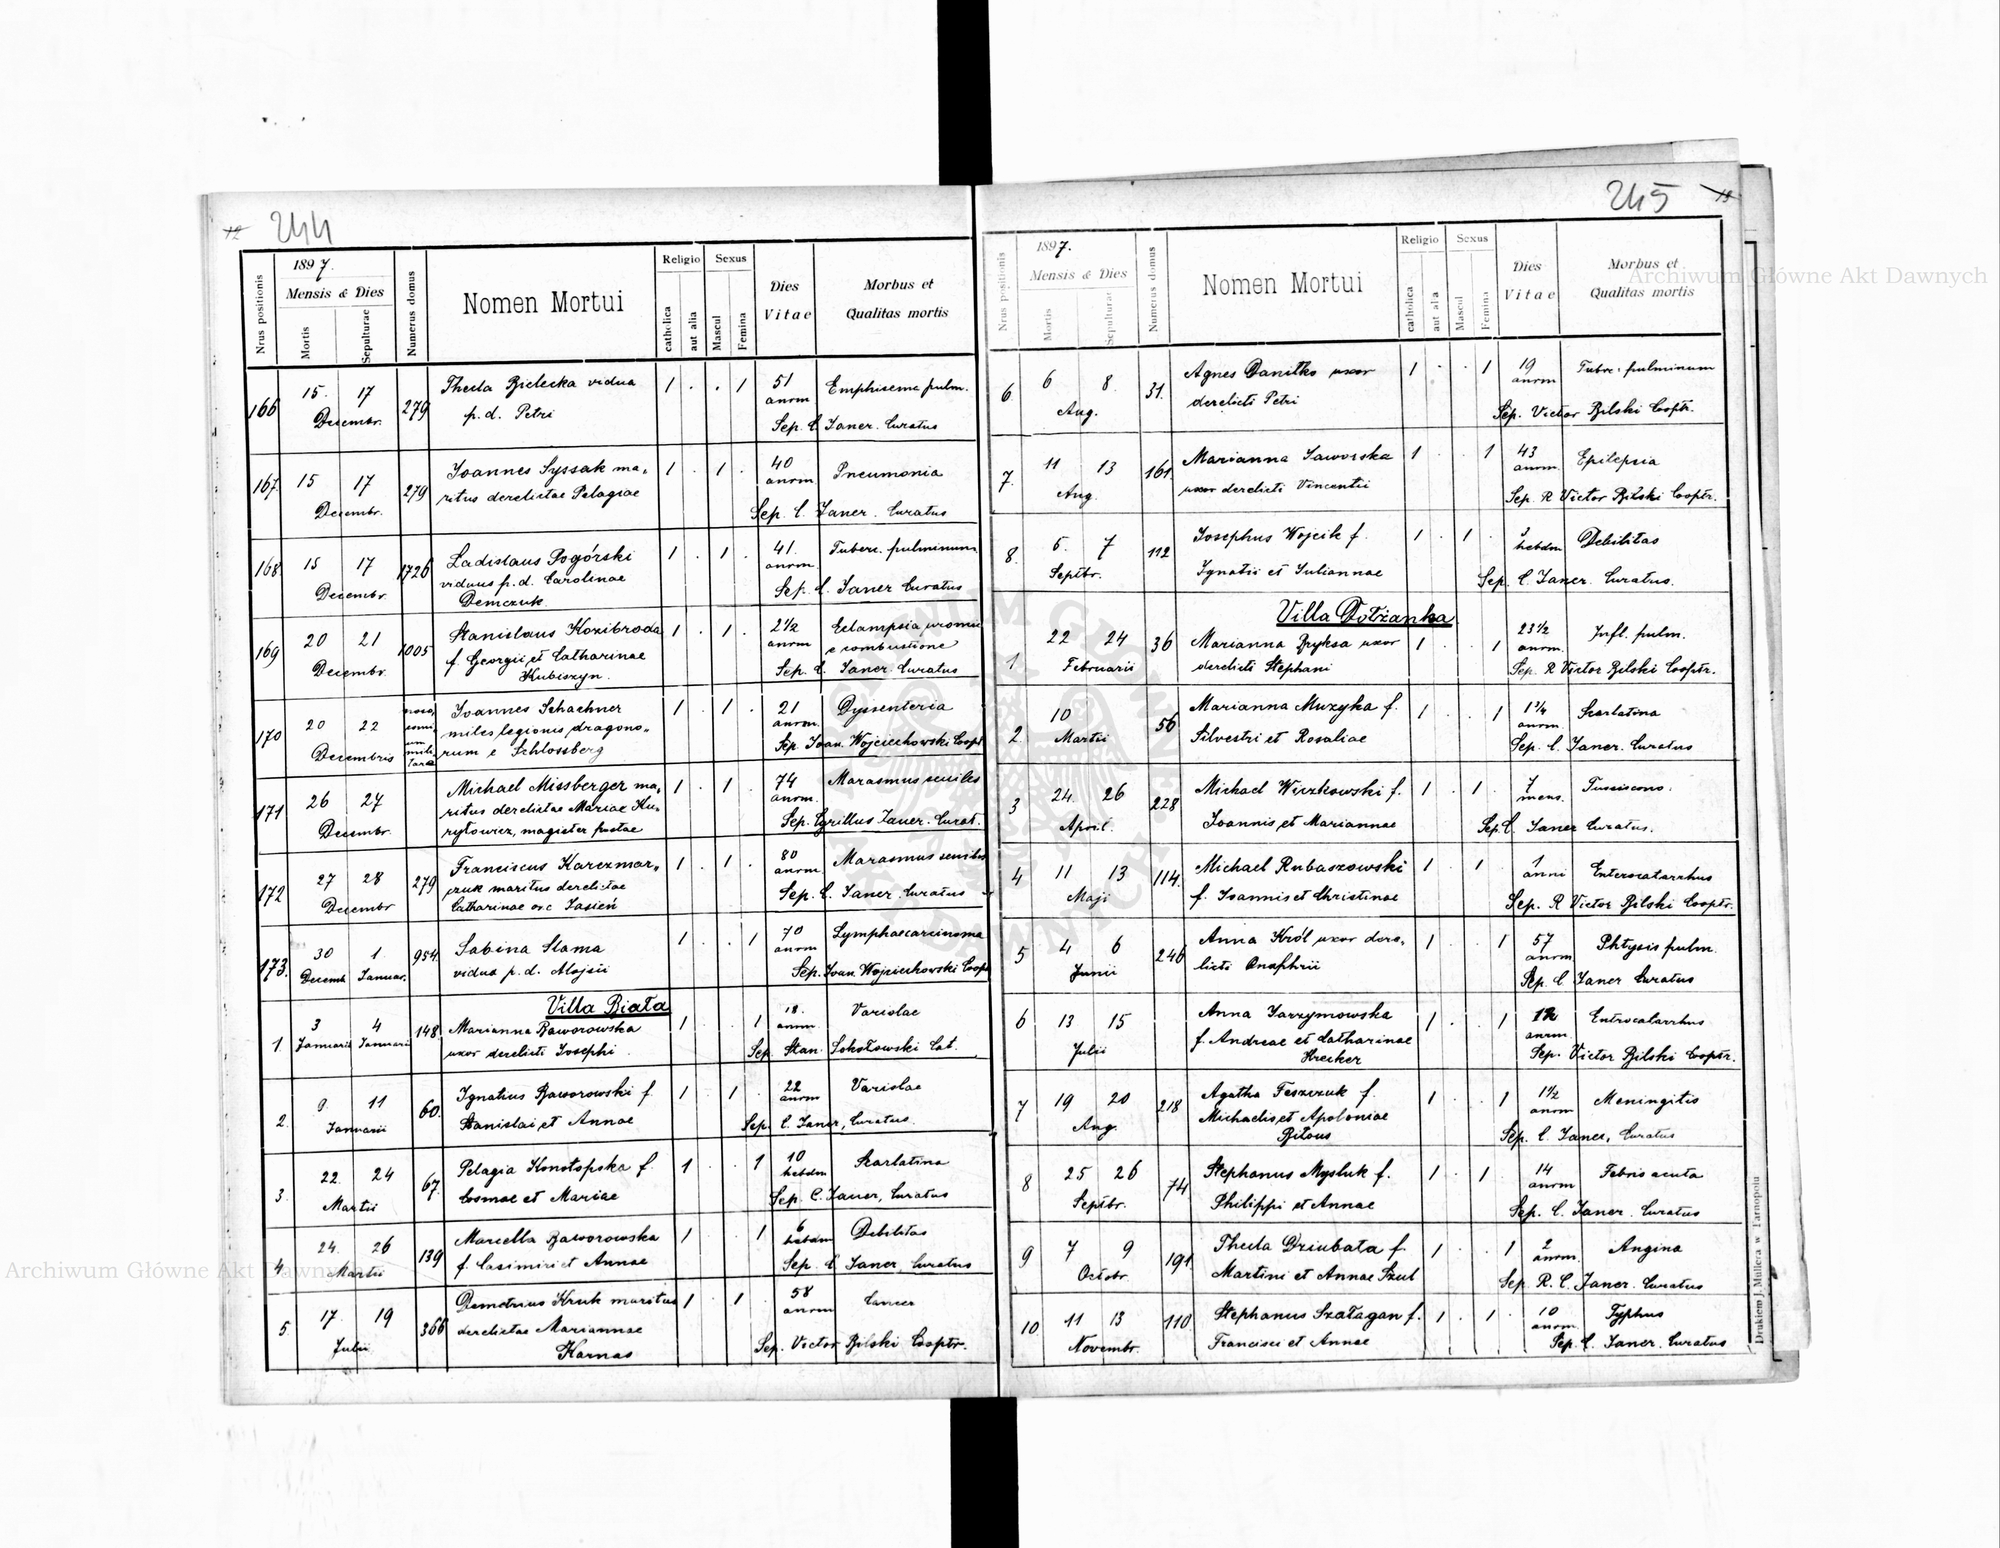 244
1897.
Nrus positionis
Mensis & Dies
Mortis
Sepulturae
Numerus domus
Nomen Mortui
Religio
catholica
aut alia
Sexus
Mascul
Femina
Dies
Vitae
Morbus et
Qualitas mortis
166 15. 17 Decembr. 279
Thecla Bielecka vidua
p. d. Petri
1 . . 1 51 anorm Emphisema pulm.
Sep. C. Janer. Curatus
167. 15 17 Decembr. 279
Joannes Syssak ma„
ritus derelictae Pelagiae
1 . 1 . 40 anorm Pneumonia
Sep. C. Janer. Curatus
168. 15 17 Decembr. 1726
Ladislaus Pogórski
viduus p. d. Carolinae
Demczuk.
1 . 1 . 41. anorm Tuberc. pulminum
Sep. C. Janer Curatus
169 20 21 Decembr. 1005
Stanislaus Kozibroda
f. Georgii et Catharinae
Kubiszyn.
1 . 1 . 2 1/2 anorm Eclampsia
e combustione
Sep. C. Janer. Curatus
170 20 22 Decembris
Joannes Schachner
miles legionis dragono„
rum e Schlossberg
1 . 1 . 21 anorm. Dyssenteria
Sep. Joan. Wojciechowski Coopt
171 26 27 Decembr.
Michael Missberger ma„
ritus derelictae Mariae Ku„
ryłowicz, magister
1 . 1 . 74 anorm. Marasmus seniles
Sep. Cyrillus Janer. Curat.
172 27 28 Decembr 279
Franciscus Karczmar„
czuk maritus derelictae
Catharinae Jasień
1 . 1 . 80 anorm. Marasmus seniles
Sep. C. Janer. Curatus
173. 30 Decemb. 1. Januar. 954.
Sabina Slama
vidua p. d. Alojsii
1 . . 1 70 anorm Lymphaecarcinoma
Sep. Joan. Wojciechowski Coopt
Villa Biała
1. 3 Januarii 4 Januarii 148.
Marianna Baworowska
uxor derelicti Josephi.
1 1 18. anorm. Variolae
Sep. Stan. Sokołowski Cat.
2. 9. 11 Januarii 60.
Ignatius Baworowski f.
Stanislai et Annae
1 . 1 . 22 anorm Variolae
Sep. C. Janer, Curatus.
3. 22. 24 Martii 67.
Pelagia Konotopska f.
Cosmae et Mariae
1 . . 1 10 hebdm Scarlatina
Sep. C. Janer, Curatus
4. 24. 26 Martii 139
Marcella Baworowska
f. Casimiri et Annae
1 . . 1 6 hebdm Debilitas
Sep. C. Janer, Curatus
5. 17. 19 Julii 366
Demetrius Kruk maritus
derelictae Mariannae
Karnas
1 . 1 . 58 anorm Cancer
Sep. Victor Bilski Cooptr.
245
1897.
Nrus positionis
Mensis & Dies
Mortis
Sepulturae
Numerus domus
Nomen Mortui
Religio
catholica
aut alia
Sexus
Mascul
Femina
Dies
Vitae
Morbus et
Qualitas mortis
6 6 8. Aug. 31.
Agnes Daniłko uxor
derelicti Petri
1 . . 1 19 anorm Tuberc. pulminum
Sep. Victor Bilski Cooptr.
7. 11 13 Aug. 161.
Marianna Jaworska
uxor derelicti Vincentii
1 . . 1 43 anorm. Epilepsia
Sep. R Victor Bilski Cooptr.
8. 5. 7 Septbr. 112
Josephus Wojcik f.
Ignatii et Juliannae
1 . 1 . 3 hebdm Debilitas
Sep. C. Janer. Curatus.
Villa Dołżanka
1 22 24 Februarii 36
Marianna Bryksa uxor
derelicti Stephani
1 . . 1 23 1/2 anorm. Infl. pulm.
Sep. R Victor Bilski Cooptr.
2. 10 Martii 56
Marianna Muzyka f.
Silvestri et Rosaliae
1 . . 1 1 1/4 anorm. Scarlatina
Sep. C. Janer. Curatus
3 24. 26 April. 228
Michael Wiczkowski f.
Joannis et Mariannae
1 . 1 . 7 mens. Tussisconv.
Sep. C. Janer Curatus.
4 11 13 Maji 114.
Michael Rubaszowski
f. Joannis et Christinae
1 . 1 . 1 anni Enterocatarrhus
Sep. R Victor Bilski Cooptr.
5 4 6 Junii 246
Anna Król uxor dere„
licti Onuphrii
1 . . 1 57 anorm Phtysis pulm.
Sep. C. Janer Curatus
6 13 15 Julii
Anna Jarzymowska
f. Andreae et Catharinae
Hrecker
1 . . 1 anorm. Entrocatarrhus
Sep. Victor Bilski Cooptr.
7 19 20 Aug. 218
Agatha Feszczuk f.
Michaelis et Apoloniae
Biłous
1 . . 1 1 1/2 anorm Meningitis
Sep. C. Janer, Curatus
8 25 26 Septbr. 74
Stephanus Mysluk f.
Philippi et Annae
1 . 1 . 14 anorm Febris acuta
Sep. C. Janer. Curatus
9 7 9 Octobr. 191.
Thecla Dziubata f.
Martini et Annae Szul
1 . . 1 2 anorm. Angina
Sep. R. C. Janer. Curatus
10. 11 13 Novembr. 110
Stephanus Szałagan f.
Francisci et Annae
1 . 1 . 10 anorm. Typhus
Sep. C. Janer. Curatus
Drukiem J. Müllera w Tarnopolu
Archiwum Główne Akt Dawnych
Archiwum Główne Akt Dawnych